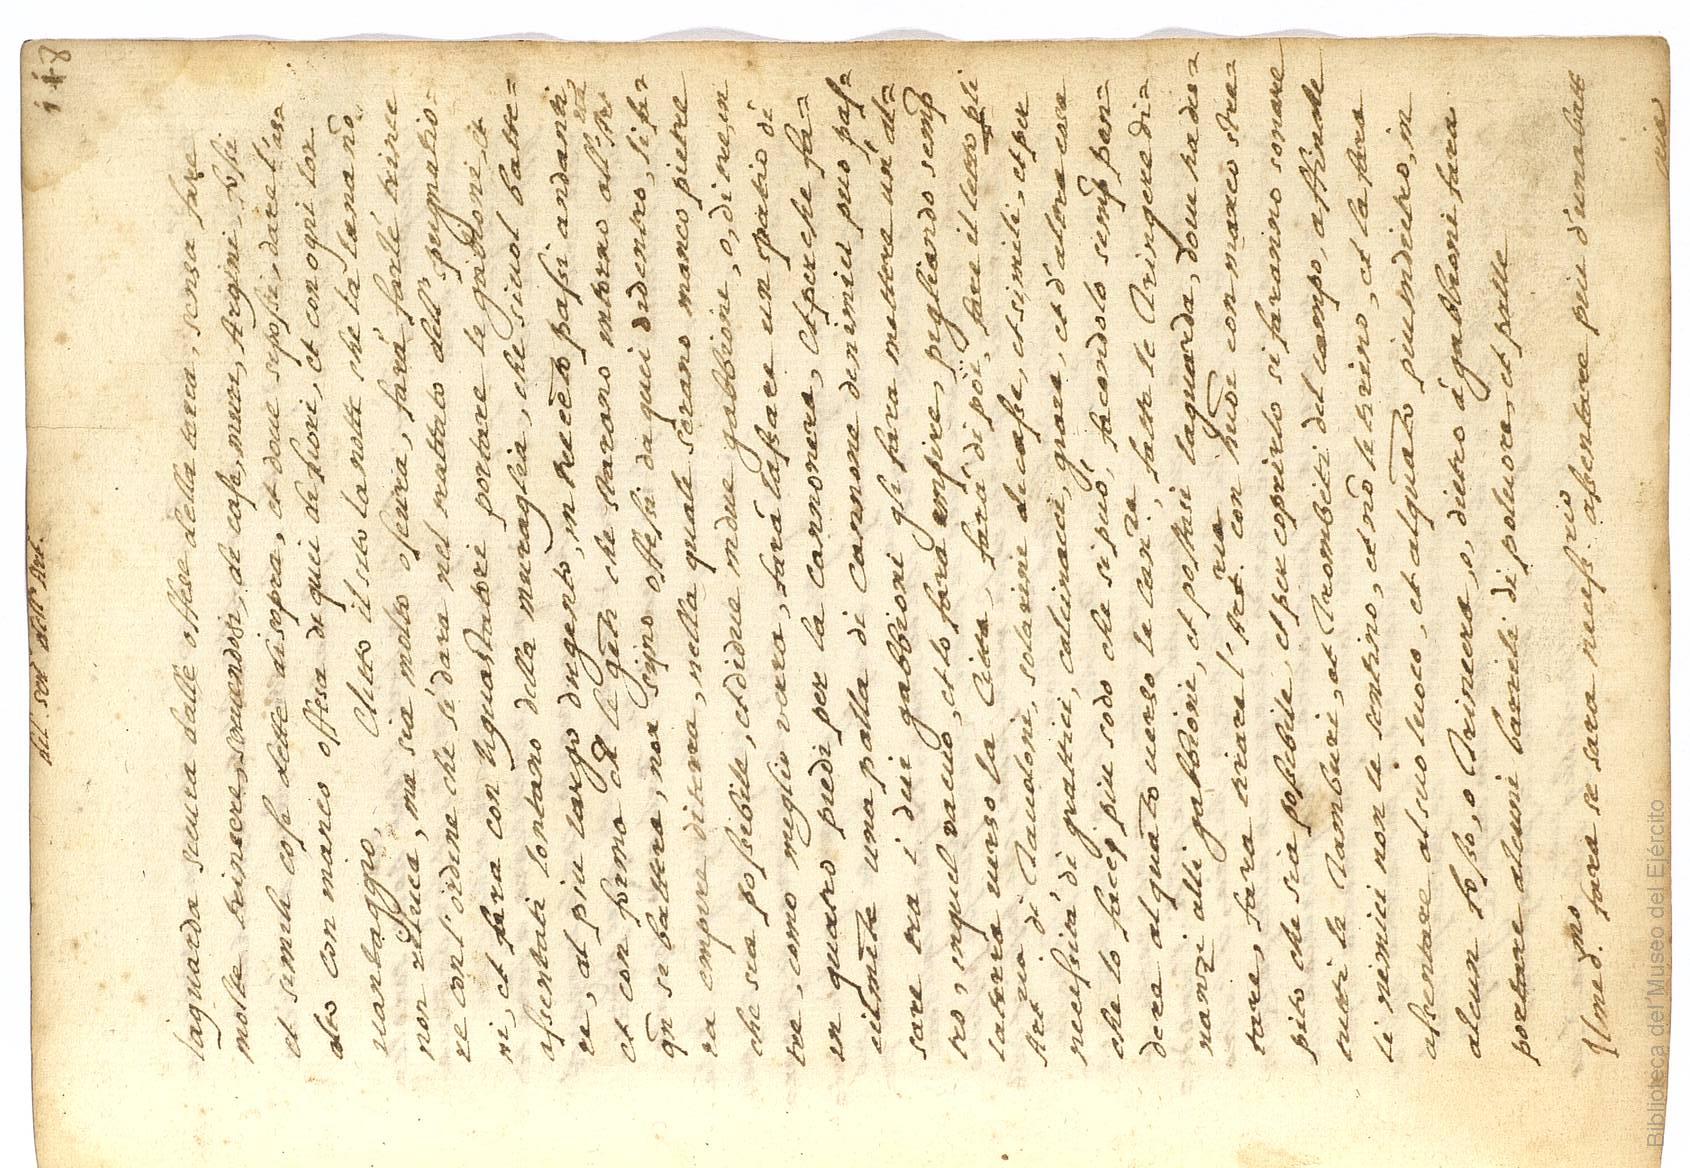 118
del ser.o dell' Art.
laguarda sicura dalle offese della terra, senza fare
molte trinscere, servendosi de case, muri, Argini, fossi
et simili cose dette disopra, et doue si possi, dare l'as=
alto con manco offesa di quei de fuori, et con ogni lor
uantaggio. Tutto il suo la notte che la luna nõ
non reluca, ma sia molto oscura, farà farle trince
re con l'ordine che se darà nel trattato dell' pugnatio=
ni, et farà con li guastatori portare le gabbioni, et
assentati lontano della muraglia, che si uol battere=
re, al piu largo dugento, in trecẽto passi andanti
et con forma che le gẽti che starano intorno all' Ar
qñ si battera, non siano offesi da quei didentro, si fa=
ra empire diterra, nella quale serano manco pietre
che sia possibile, et didue indue gabbione, o, di tre, in
tre, como meglio uerra, farà lassare un spatio di
in quatro piedi per la Cannonera, Et perche fa=
cilmẽte una palla di Cannone de nimici puo pas=
sare tra i dui gabbioni gli fara mettere un' al=
tro, in quel uacuo, et lo farà empire, pigliando semp
laterra uerso la Citta, farà di poi, fare il letto pli
Artria di Tauoloni, solarine de casse, et simili, et per
necessità di gratici, calcinacci, grare, et d'altre cose
che lo facci piu sodo che si puó, facendolo semp pen=
dere alquãto uerso la Cannonera, fatte le Aringere di=
nanzi alli gabbioni, et postasi laguarda, doue ha da=
tare, fara tirare l'Artria con huõi con manco stre=
pito che sia possibile, et per coprirlo si faranno sonare
tutti le Tamburi, et Trombetti del campo, affinche
li nimici non le sentino, et nõ le tirino, et la fara
assentare al suo luoco, et alquãto piu indietro, in
alcun fosso, o Trincera, o, dietro á gabbioni fara
portare alcuni barili di poluere, et palle
Il med.mo fara se sara necess.rio assentare piu d'una batt
Biblioteca del Museo del Ejército